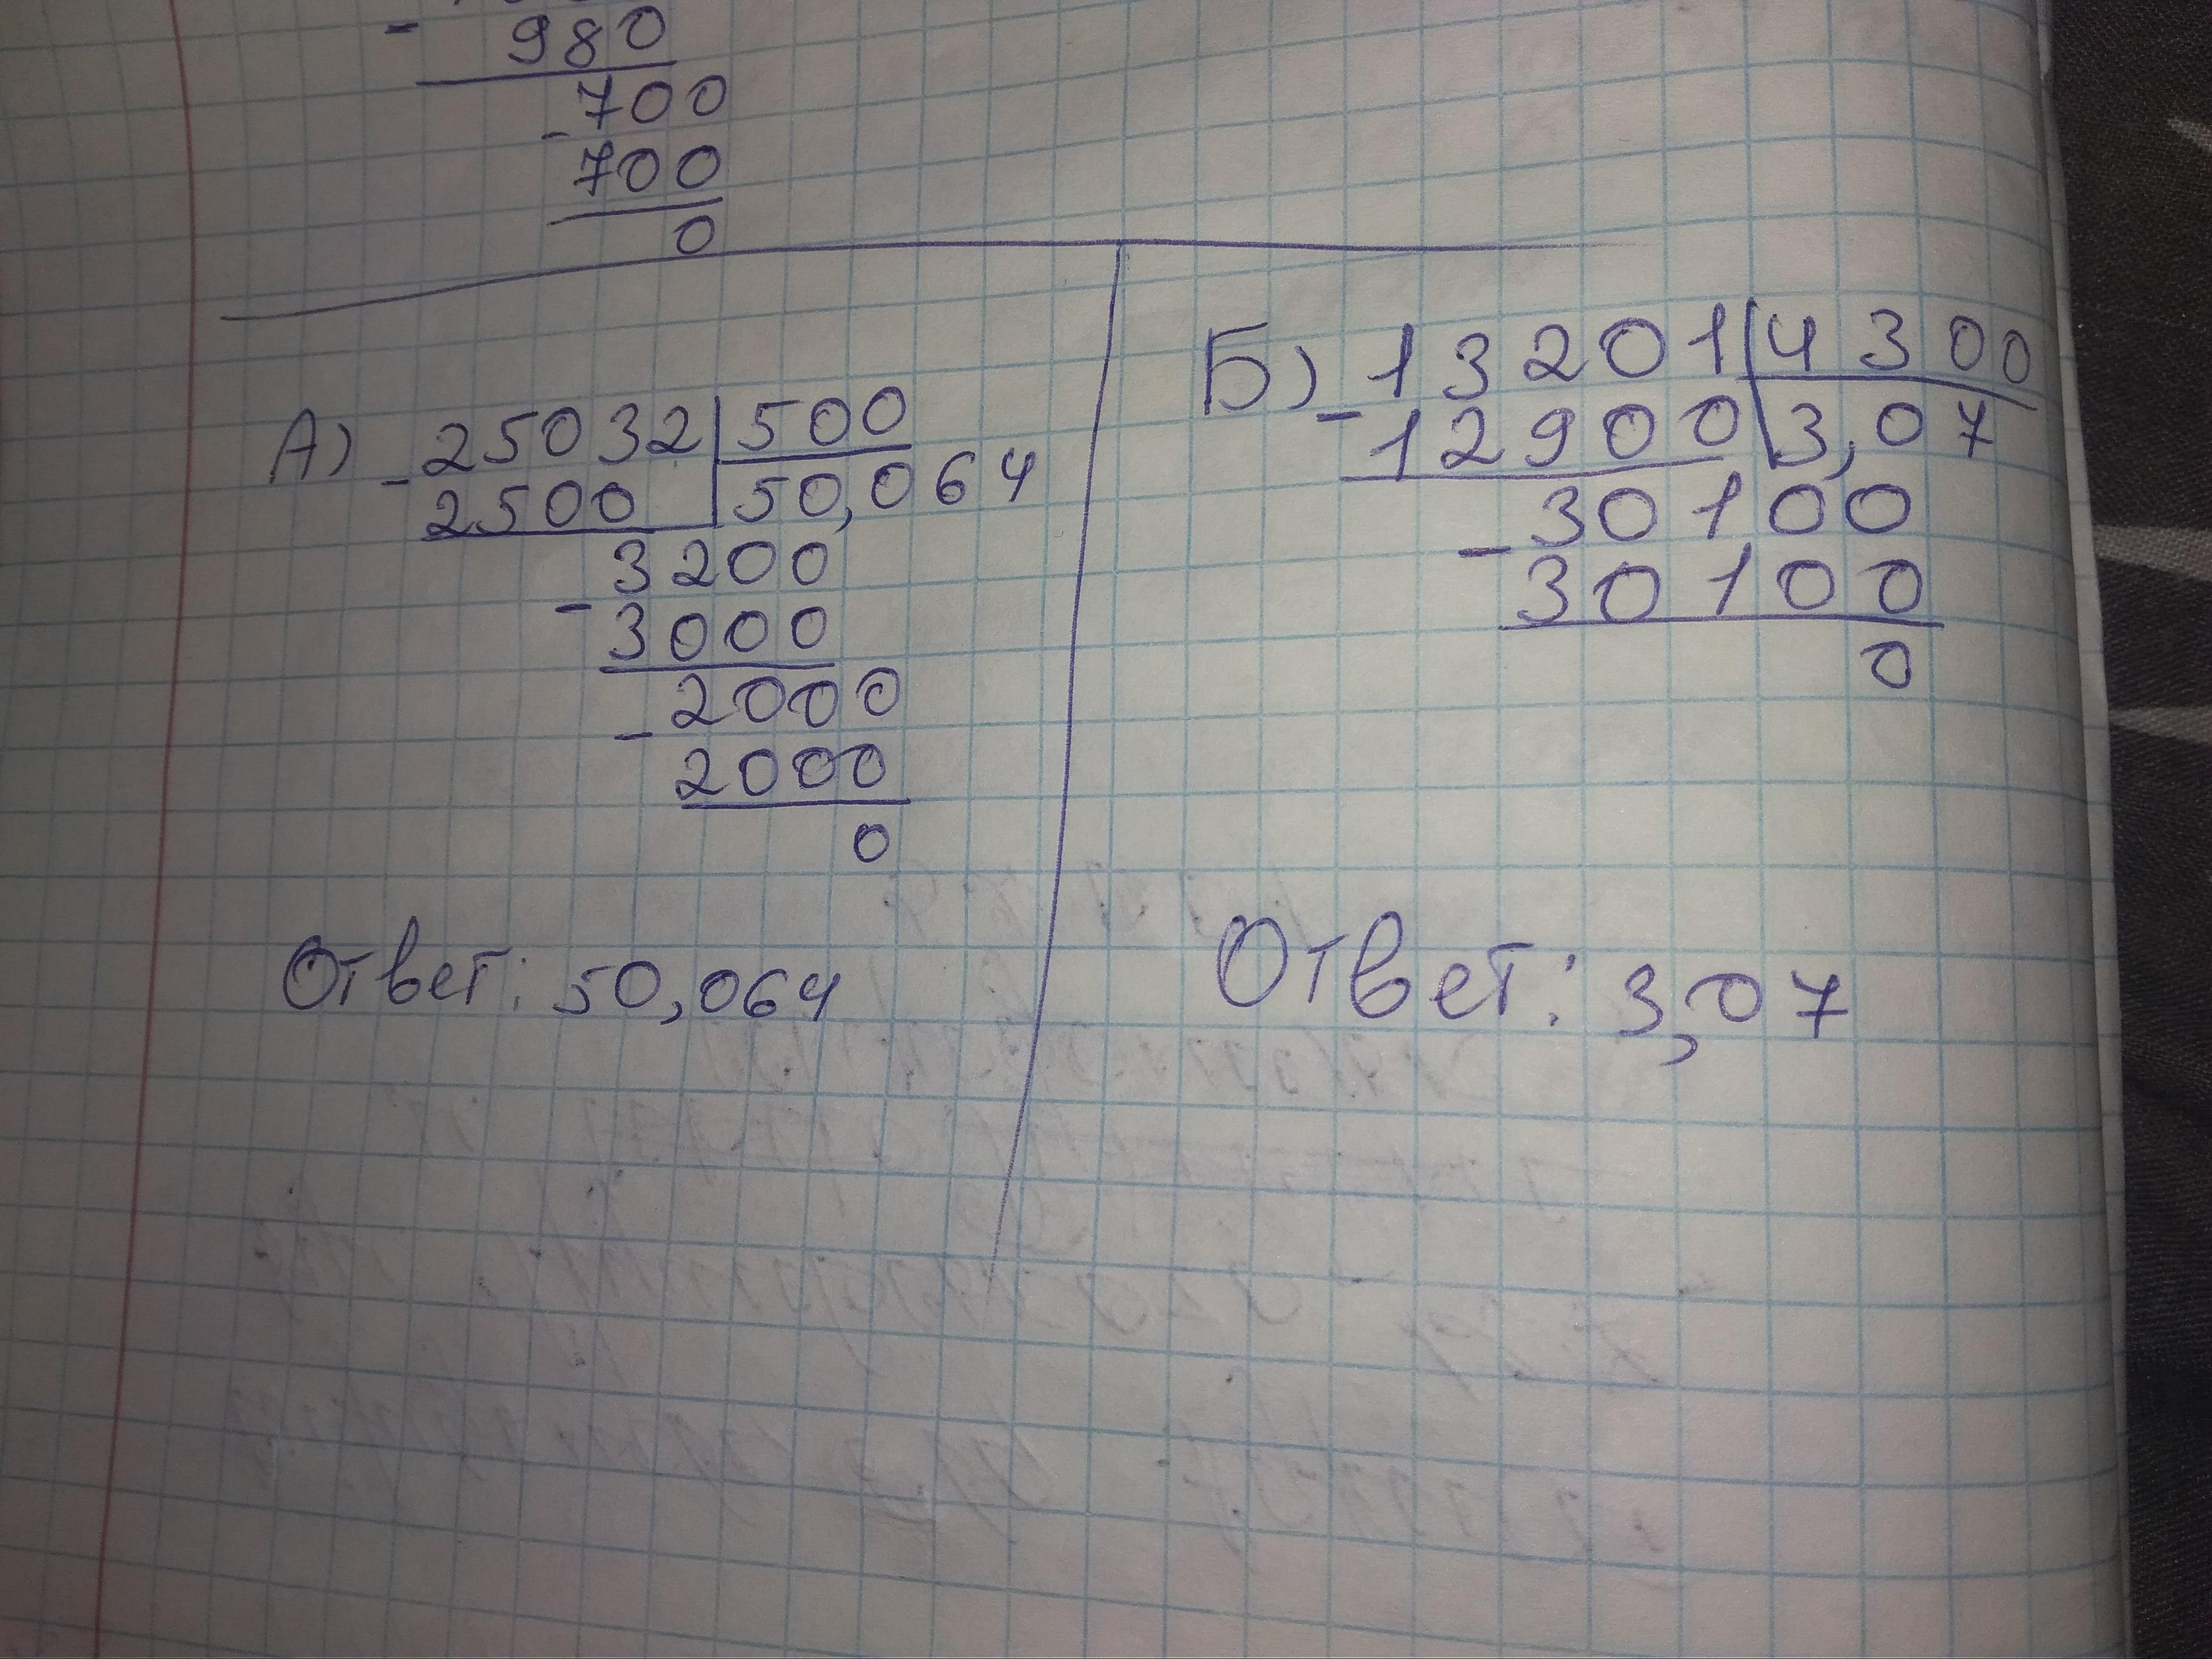 - 980
700
- 700
0
А) - 25032 | 500
2500 | 50,064
3200
- 3000
2000
- 2000
0
Ответ: 50,064
Б) - 13201 | 4300
12900 | 3,07
30100
- 30100
0
Ответ: 3,07